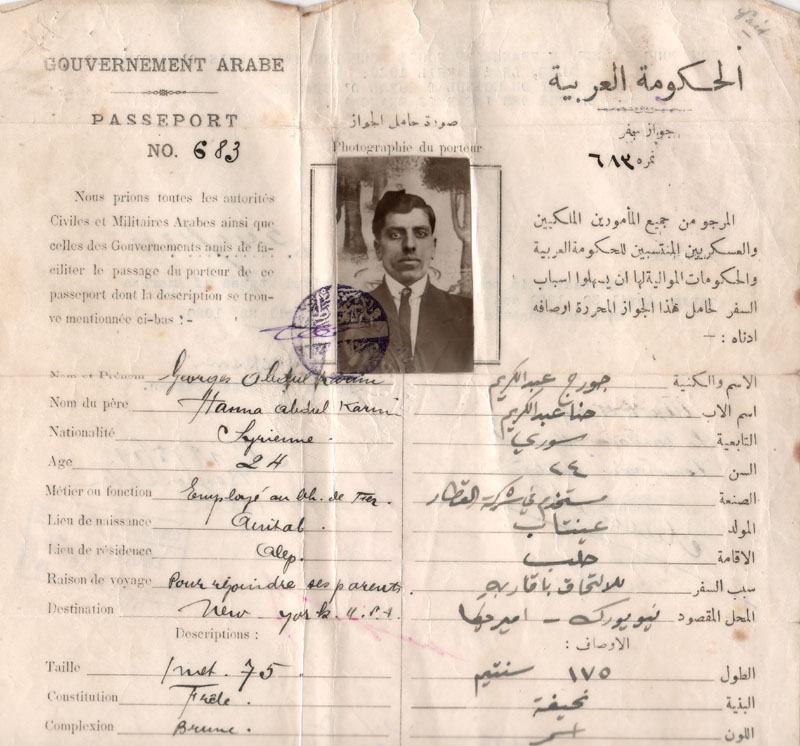 GOUVERNEMENT ARABE
PASSEPORT
NO. 683
Nous prions toutes les autorités
Civiles et Militaires Arabes ainsi que
celles des Gouvernements amis de fa-
ciliter le passage du porteur de ce
passeport dont la description se trou-
ve mentionnée ci-bas :-
صورة حامل الجواز
Photographie du porteur
الحكومة العربية
جواز سفر
نمره ٦٨٣
المرجو من جميع المأمورين الملكيين
والعسكريين المنتسبين للحكومة العربية
والحكومات الموالية لها ان يسهلوا اسباب
السفر لحامل هذا الجواز المحررة اوصافه
ادناه : -
Nom et Prénom Georges Abdul Karim
Nom du père Hanna Abdul Karim
Nationalité Syrienne.
Age 24
Métier ou fonction Employé au ch. de Fer.
Lieu de naissance Aintab.
Lieu de résidence Alep.
Raison de voyage Pour rejoindre ses parents.
Destination New york U.S.A.
Descriptions :
Taille 1 met. 75
Constitution Frêle.
Complexion Brune.
الاسم والكنية جورج عبدالكريم
اسم الاب حنا عبدالكريم
التابعية سوري
السن ٢٤
الصنعة مستخدم في شركة القطار
المولد عينتاب
الاقامة حلب
سبب السفر للالتحاق باقاربه
المحل المقصود نيويورك - اميركا
الاوصاف :
الطول ١٧٥ سنتيم
البنية نحيفة
اللون اسمر